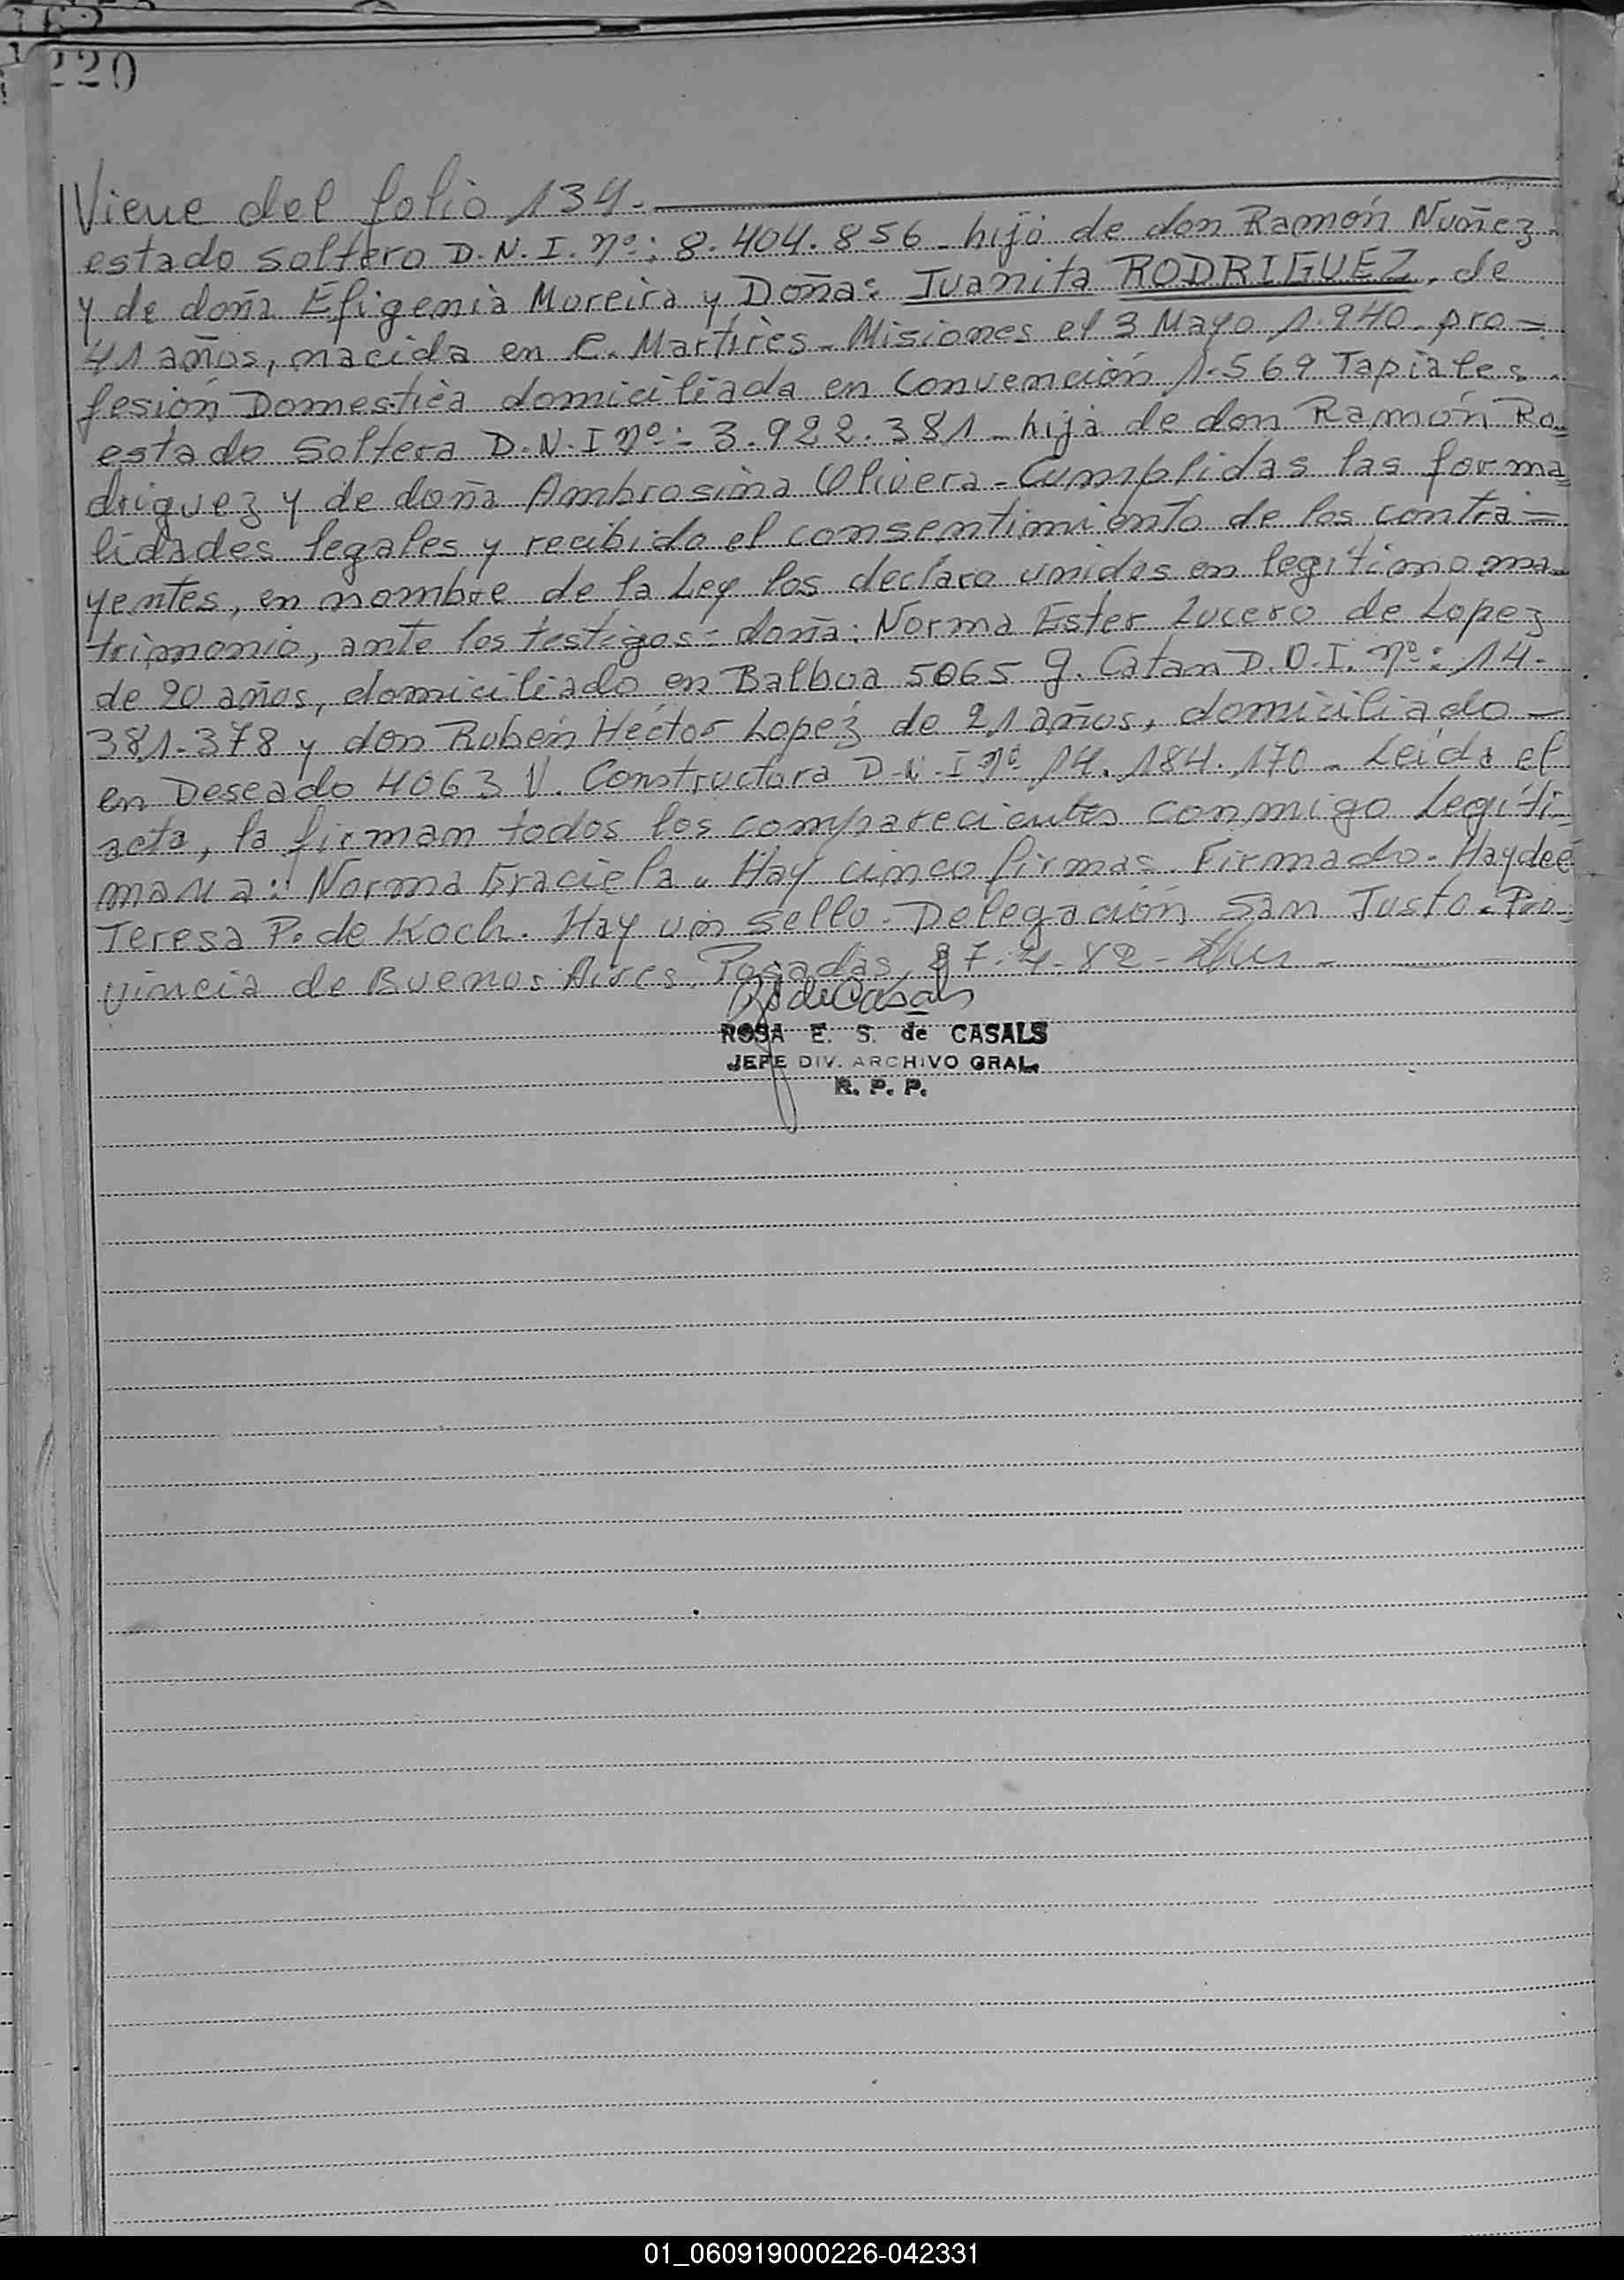 220
Viene del folio 134.
estado soltero D.N.I. nº: 8.404.856 - hijo de don Ramón Nuñez.
y de doña Efigenia Moreira y Doña: Juanita RODRIGUEZ, de
41 años, nacida en C. Martires - Misiones el 3 Mayo 1.940 - pro=
fesión Domestica domiciliada en Convención 1.569 Tapiales.
estado Soltera D.N.I nº: 3.922.381 - hija de don Ramón Ro=
driguez y de doña Ambrosina Olivera - Cumplidas las forma=
lidades legales y recibido el consentimiento de los contra=
yentes, en nombre de la Ley los declaro unidos en legitimo ma=
trimonio, ante los testigos: doña: Norma Ester Lucero de Lopez
de 20 años, domiciliado en Balboa 5065 g. Catan D.O.I. nº: 14.
381.378 y don Rubén Héctor Lopez de 21 años, domiciliado -
en Deseado 4063 V. Constructora D.N.I nº 14.184.170 - Leida el
acta, la firman todos los comparecientes conmigo Legiti=
mava: Norma Graciela. Hay cinco firmas. Firmado. Haydeé
Teresa P. de Koch. Hay un sello - Delegación San Justo. Pro=
vincia de Buenos Aires. Posadas, 27-4-82 -
ROSA E. S. de CASALS
JEFE DIV. ARCHIVO GRAL.
R. P. P.
01_060919000226-042331